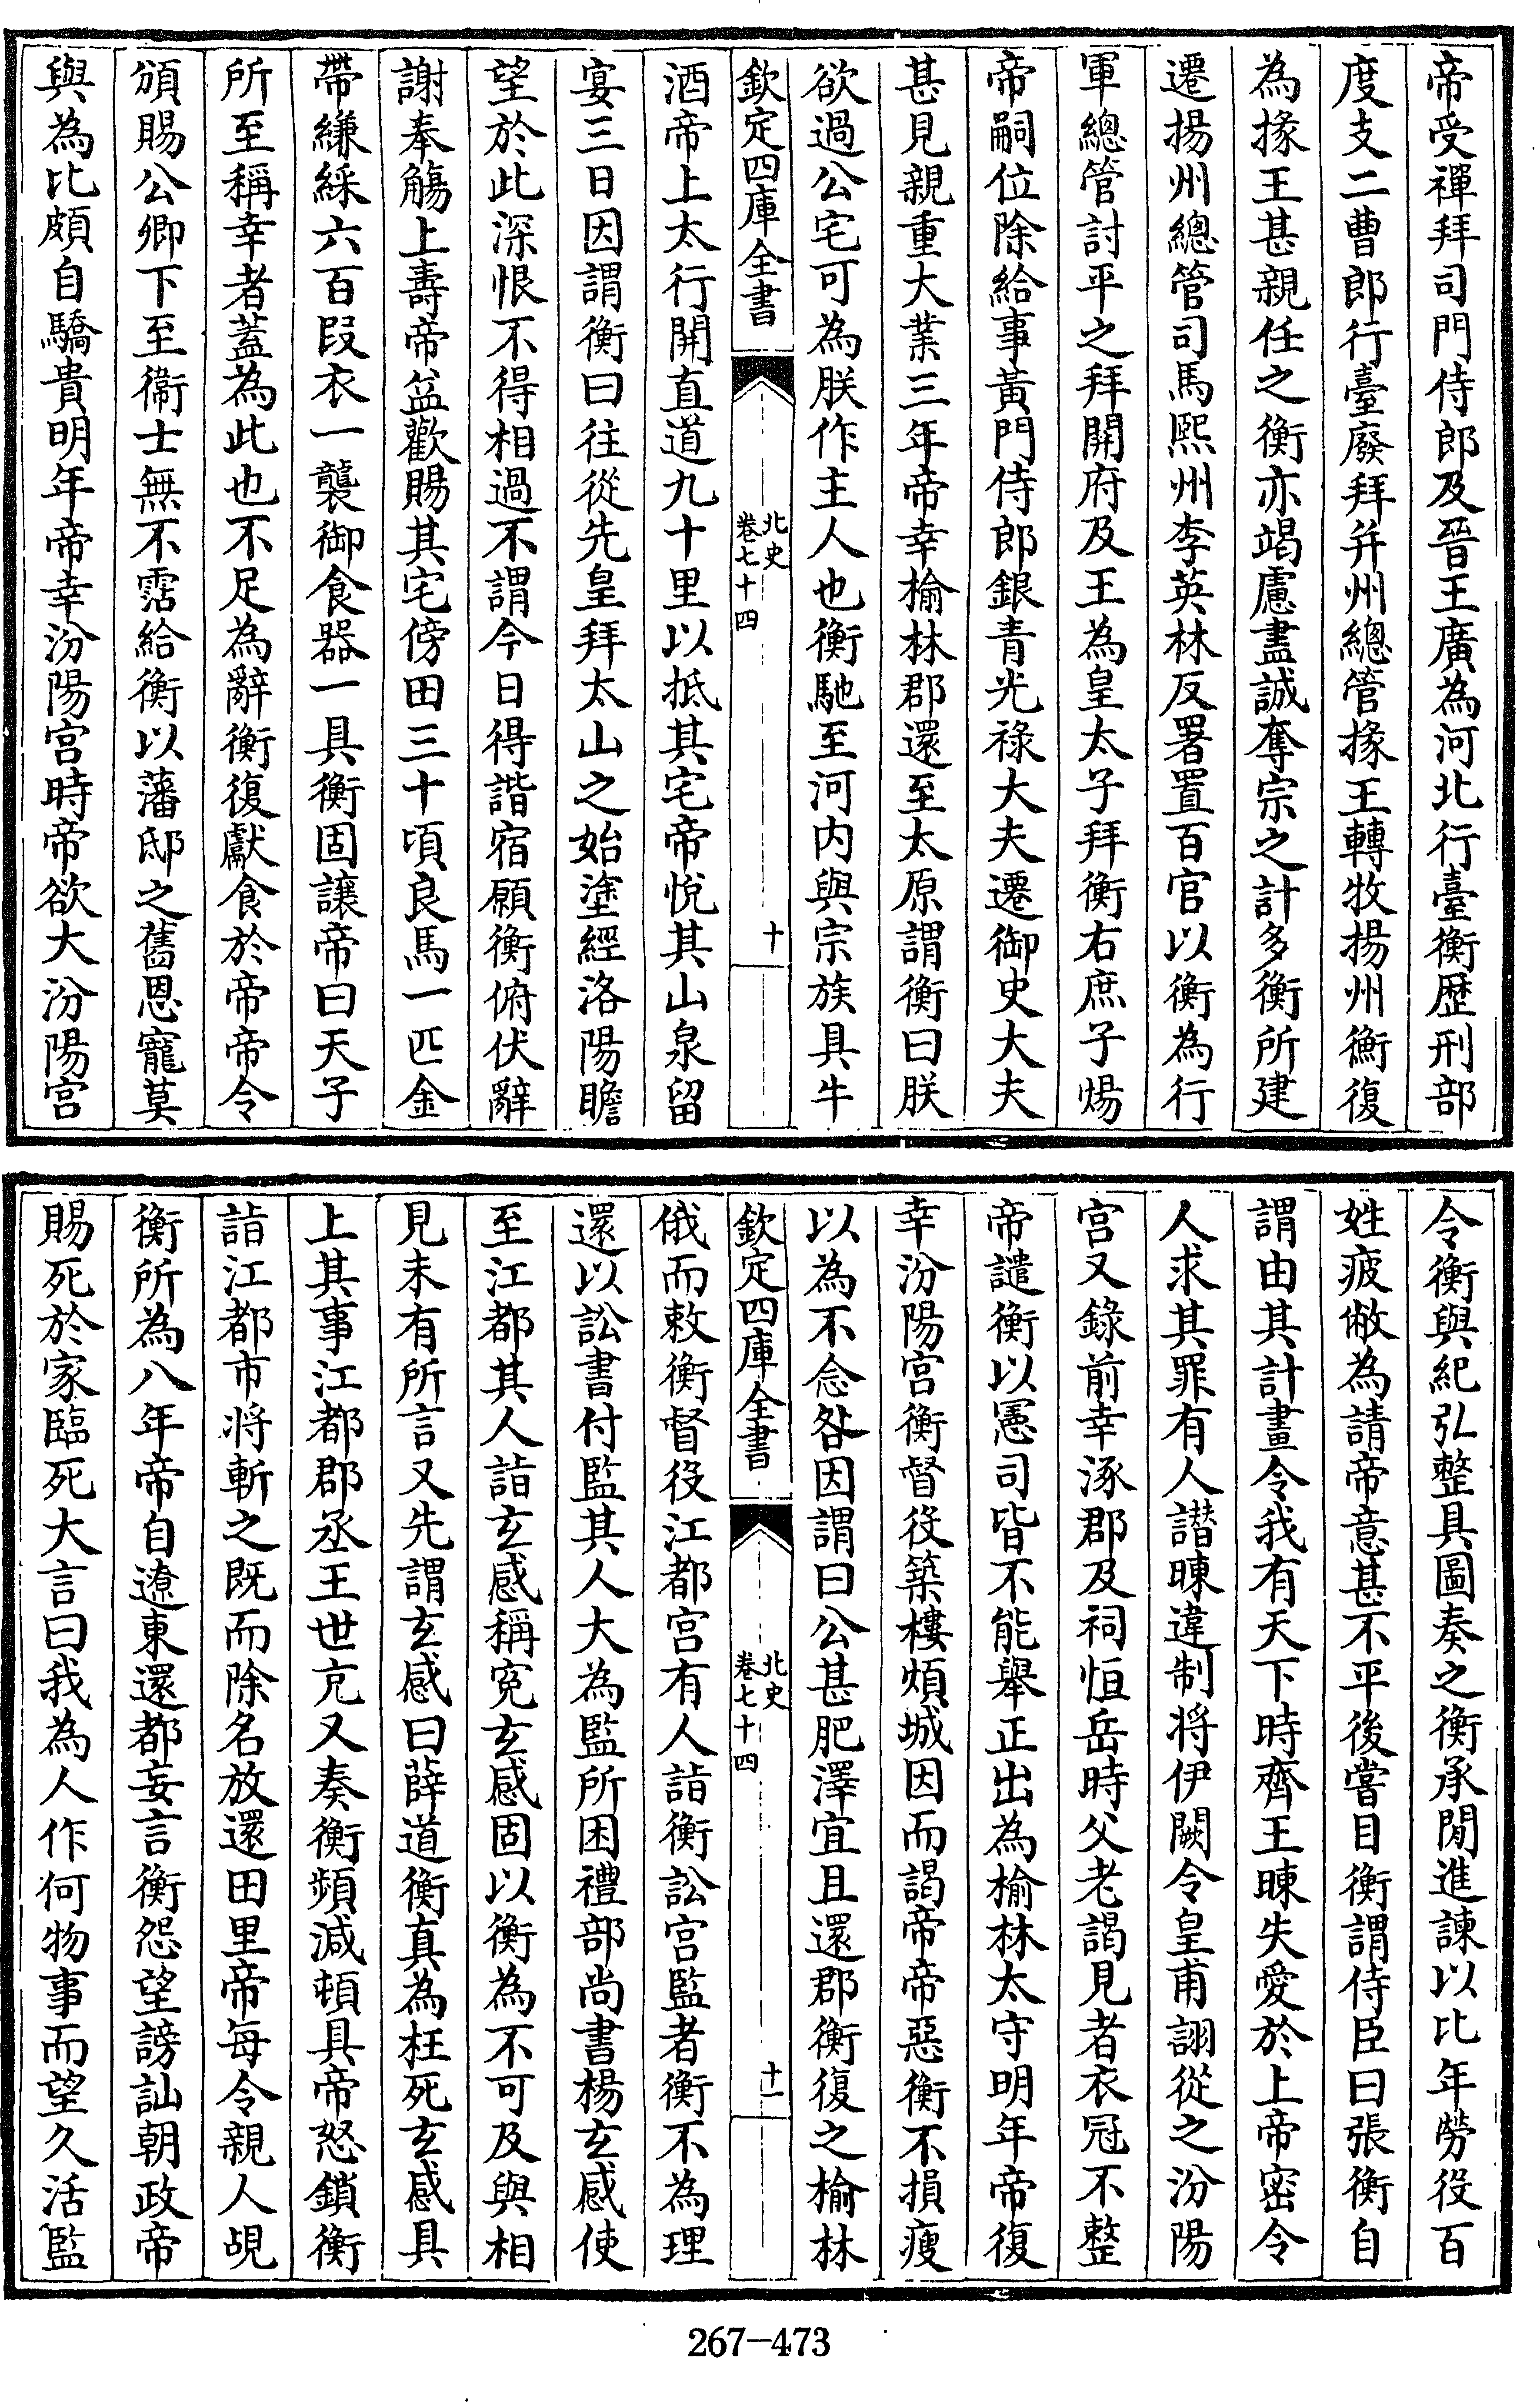 帝受禪拜司門侍郎及晉王廣為河北行臺衡歴刑部
度支二曹郎行臺廢拜并州總管掾王轉牧揚州衡復
為掾王甚親任之衡亦竭慮盡誠奪宗之計多衡所建
遷揚州總管司馬熈州李英林反署置百官以衡為行
軍總管討平之拜開府及王為皇太子拜衡右庶子煬
帝嗣位除給事黃門侍郎銀青光祿大夫遷御史大夫
甚見親重大業三年帝幸榆林郡還至太原謂衡曰朕
欲過公宅可為朕作主人也衡馳至河内與宗族具牛
欽定四庫全書
北史
卷七十四
十
酒帝上太行開直道九十里以抵其宅帝悅其山泉留
宴三日因謂衡曰往從先皇拜太山之始塗經洛陽瞻
望於此深恨不得相過不謂今日得諧宿願衡俯伏辭
謝奉觴上壽帝益歡賜其宅傍田三十頃良馬一匹金
帶縑綵六百段衣一襲御食器一具衡固讓帝曰天子
所至稱幸者蓋為此也不足為辭衡復獻食於帝帝令
頒賜公卿下至衞士無不霑給衡以藩邸之舊恩寵莫
與為比頗自驕貴明年帝幸汾陽宫時帝欲大汾陽宫
令衡與紀弘整具圖奏之衡承閒進諫以比年勞役百
姓疲敝為請帝意甚不平後嘗目衡謂侍臣曰張衡自
謂由其計畫令我有天下時齊王暕失愛於上帝密令
人求其罪有人譖暕違制将伊闕令皇甫詡從之汾陽
宫又錄前幸涿郡及祠恒岳時父老謁見者衣冠不整
帝譴衡以憲司皆不能舉正出為榆林太守明年帝復
幸汾陽宫衡督役築樓煩城因而謁帝帝惡衡不損瘦
以為不念咎因謂曰公甚肥澤宜且還郡衡復之榆林
欽定四庫全書
北史
卷七十四
十一
俄而敕衡督役江都宫有人詣衡訟宫監者衡不為理
還以訟書付監其人大為監所困禮部尚書楊玄感使
至江都其人詣玄感稱寃玄感固以衡為不可及與相
見未有所言又先謂玄感曰薛道衡真為枉死玄感具
上其事江都郡丞王世充又奏衡頻減頓具帝怒鎖衡
詣江都市将斬之既而除名放還田里帝每令親人覘
衡所為八年帝自遼東還都妾言衡怨望謗訕朝政帝
賜死於家臨死大言曰我為人作何物事而望久活監
267-473